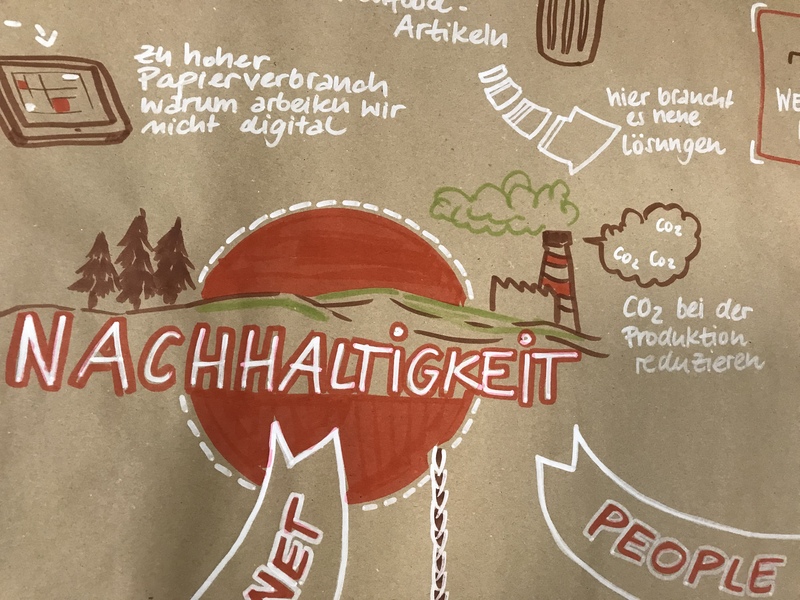 Artikeln
zu hoher
Papierverbrauch
warum arbeiten wir
nicht digital
hier braucht
es neue
lösungen
WE
CO2
CO2 CO2
CO2 bei der
Produktion
reduzieren
NACHHALTIGKEIT
NET
PEOPLE